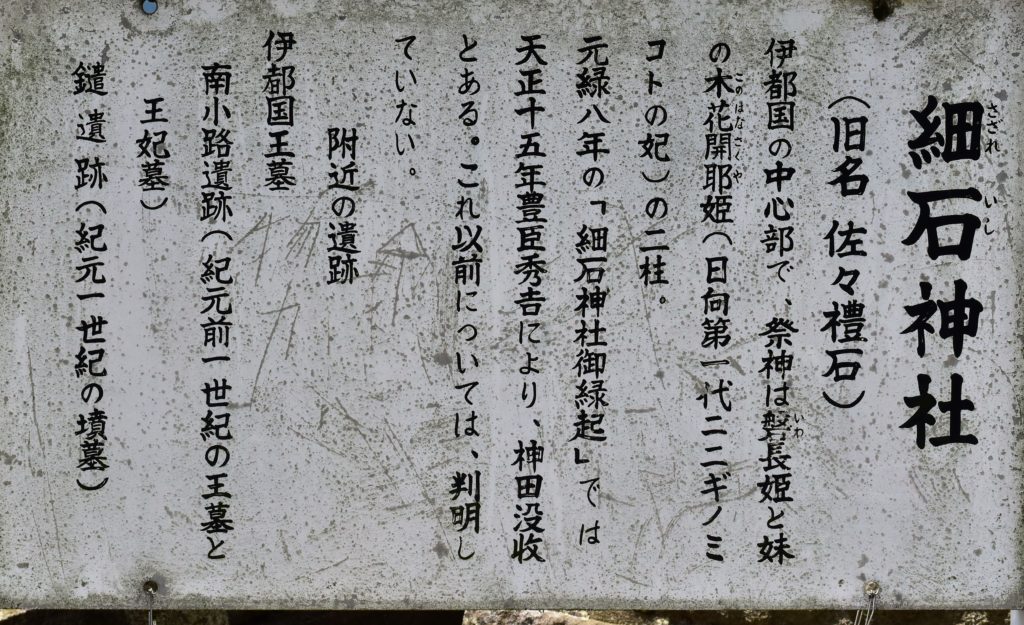 細石神社
さざれ いし
（旧名 佐々禮石）
伊都国の中心部で、祭神は磐長姫と妹
いわ
の木花開耶姫（日向第一代ニニギノミ
このはなさくや
コトの妃）の二柱。
元緑八年の「細石神社御緑起」では
天正十五年豊臣秀吉により、神田没收
とある。これ以前については、判明し
ていない。
附近の遺跡
伊都国王墓
南小路遺跡（紀元前一世紀の王墓と
王妃墓）
鑓遺跡（紀元一世紀の墳墓）